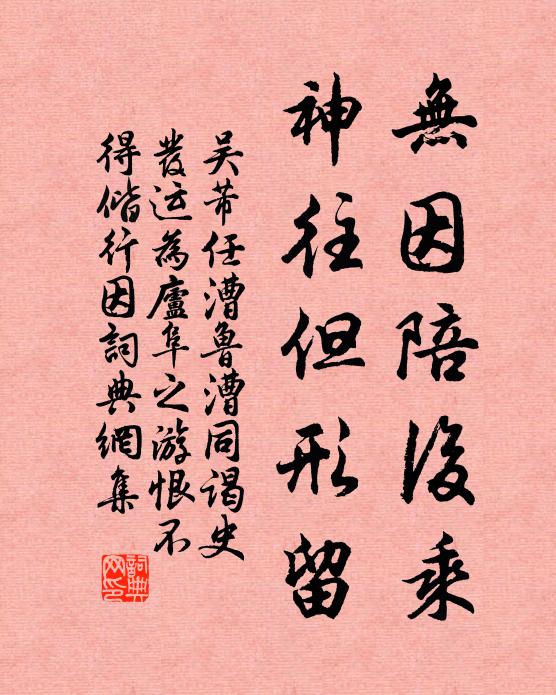 無因陪後乘
神往但形留
吴芾任漕魯漕同谒史
發运為廬阜之游恨不
得偕行因詞典網集
詞典
网印